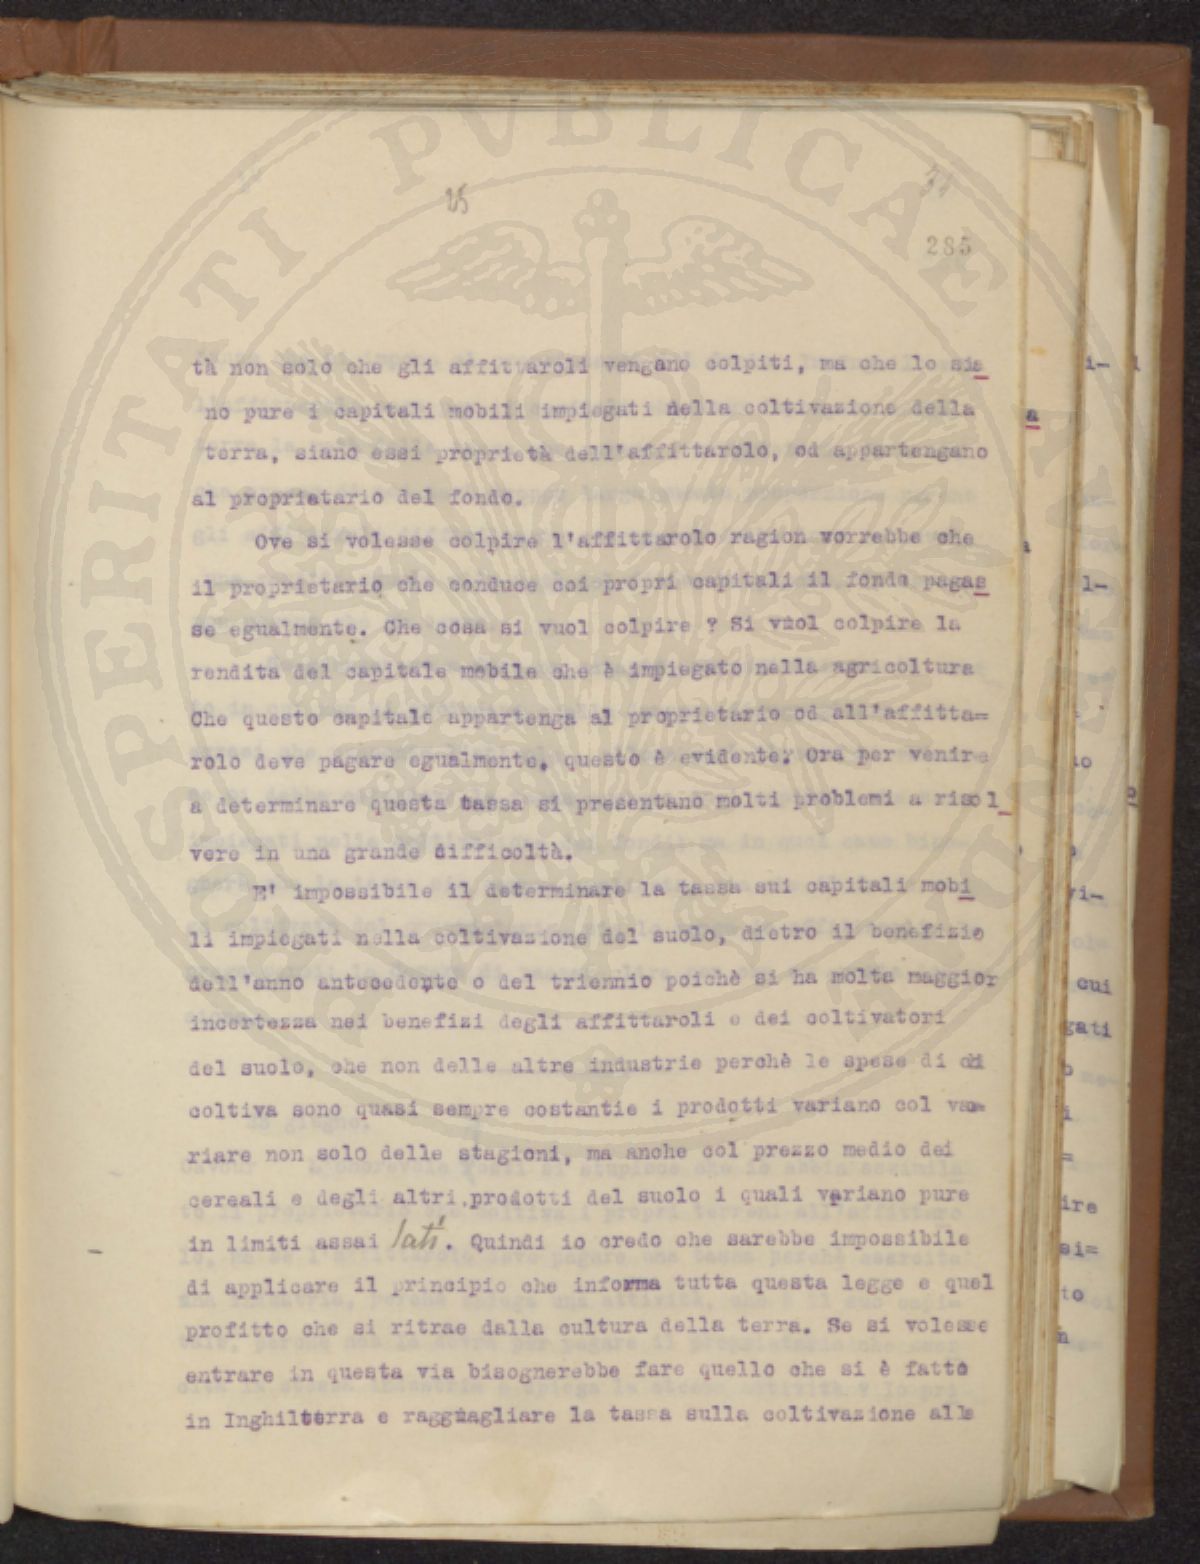 25
31
285
tà non solo che gli affittaroli vengano colpiti, ma che lo sia
no pure i capitali mobili impiegati nella coltivazione della
terra, siano essi proprietà dell'affittarolo, od appartengano
al proprietario del fondo.
Ove si volesse colpire l'affittarolo ragion vorrebbe che
il proprietario che conduce coi propri capitali il fondo pagas
se egualmente. Che cosa si vuol colpire ? Si vuol colpire la
rendita del capitale mobile che è impiegato nella agricoltura
Che questo capitale appartenga al proprietario od all'affitta=
rolo deve pagare egualmente, questo è evidente. Ora per venire
a determinare questa tassa si presentano molti problemi a risol
vere in una grande difficoltà.
E' impossibile il determinare la tassa sui capitali mobi
li impiegati nella coltivazione del suolo, dietro il benefizio
dell'anno antecedente o del triennio poichè si ha molta maggior
incertezza nei benefizi degli affittaroli e dei coltivatori
del suolo, che non delle altre industrie perchè le spese di chi
coltiva sono quasi sempre costantie i prodotti variano col va=
riare non solo delle stagioni, ma anche col prezzo medio dei
cereali e degli altri prodotti del suolo i quali variano pure
in limiti assai lati. Quindi io credo che sarebbe impossibile
di applicare il principio che informa tutta questa legge e quel
profitto che si ritrae dalla cultura della terra. Se si volesse
entrare in questa via bisognerebbe fare quello che si è fatto
in Inghilterra e ragguagliare la tassa sulla coltivazione alla
SPERITATI PUBLICAE